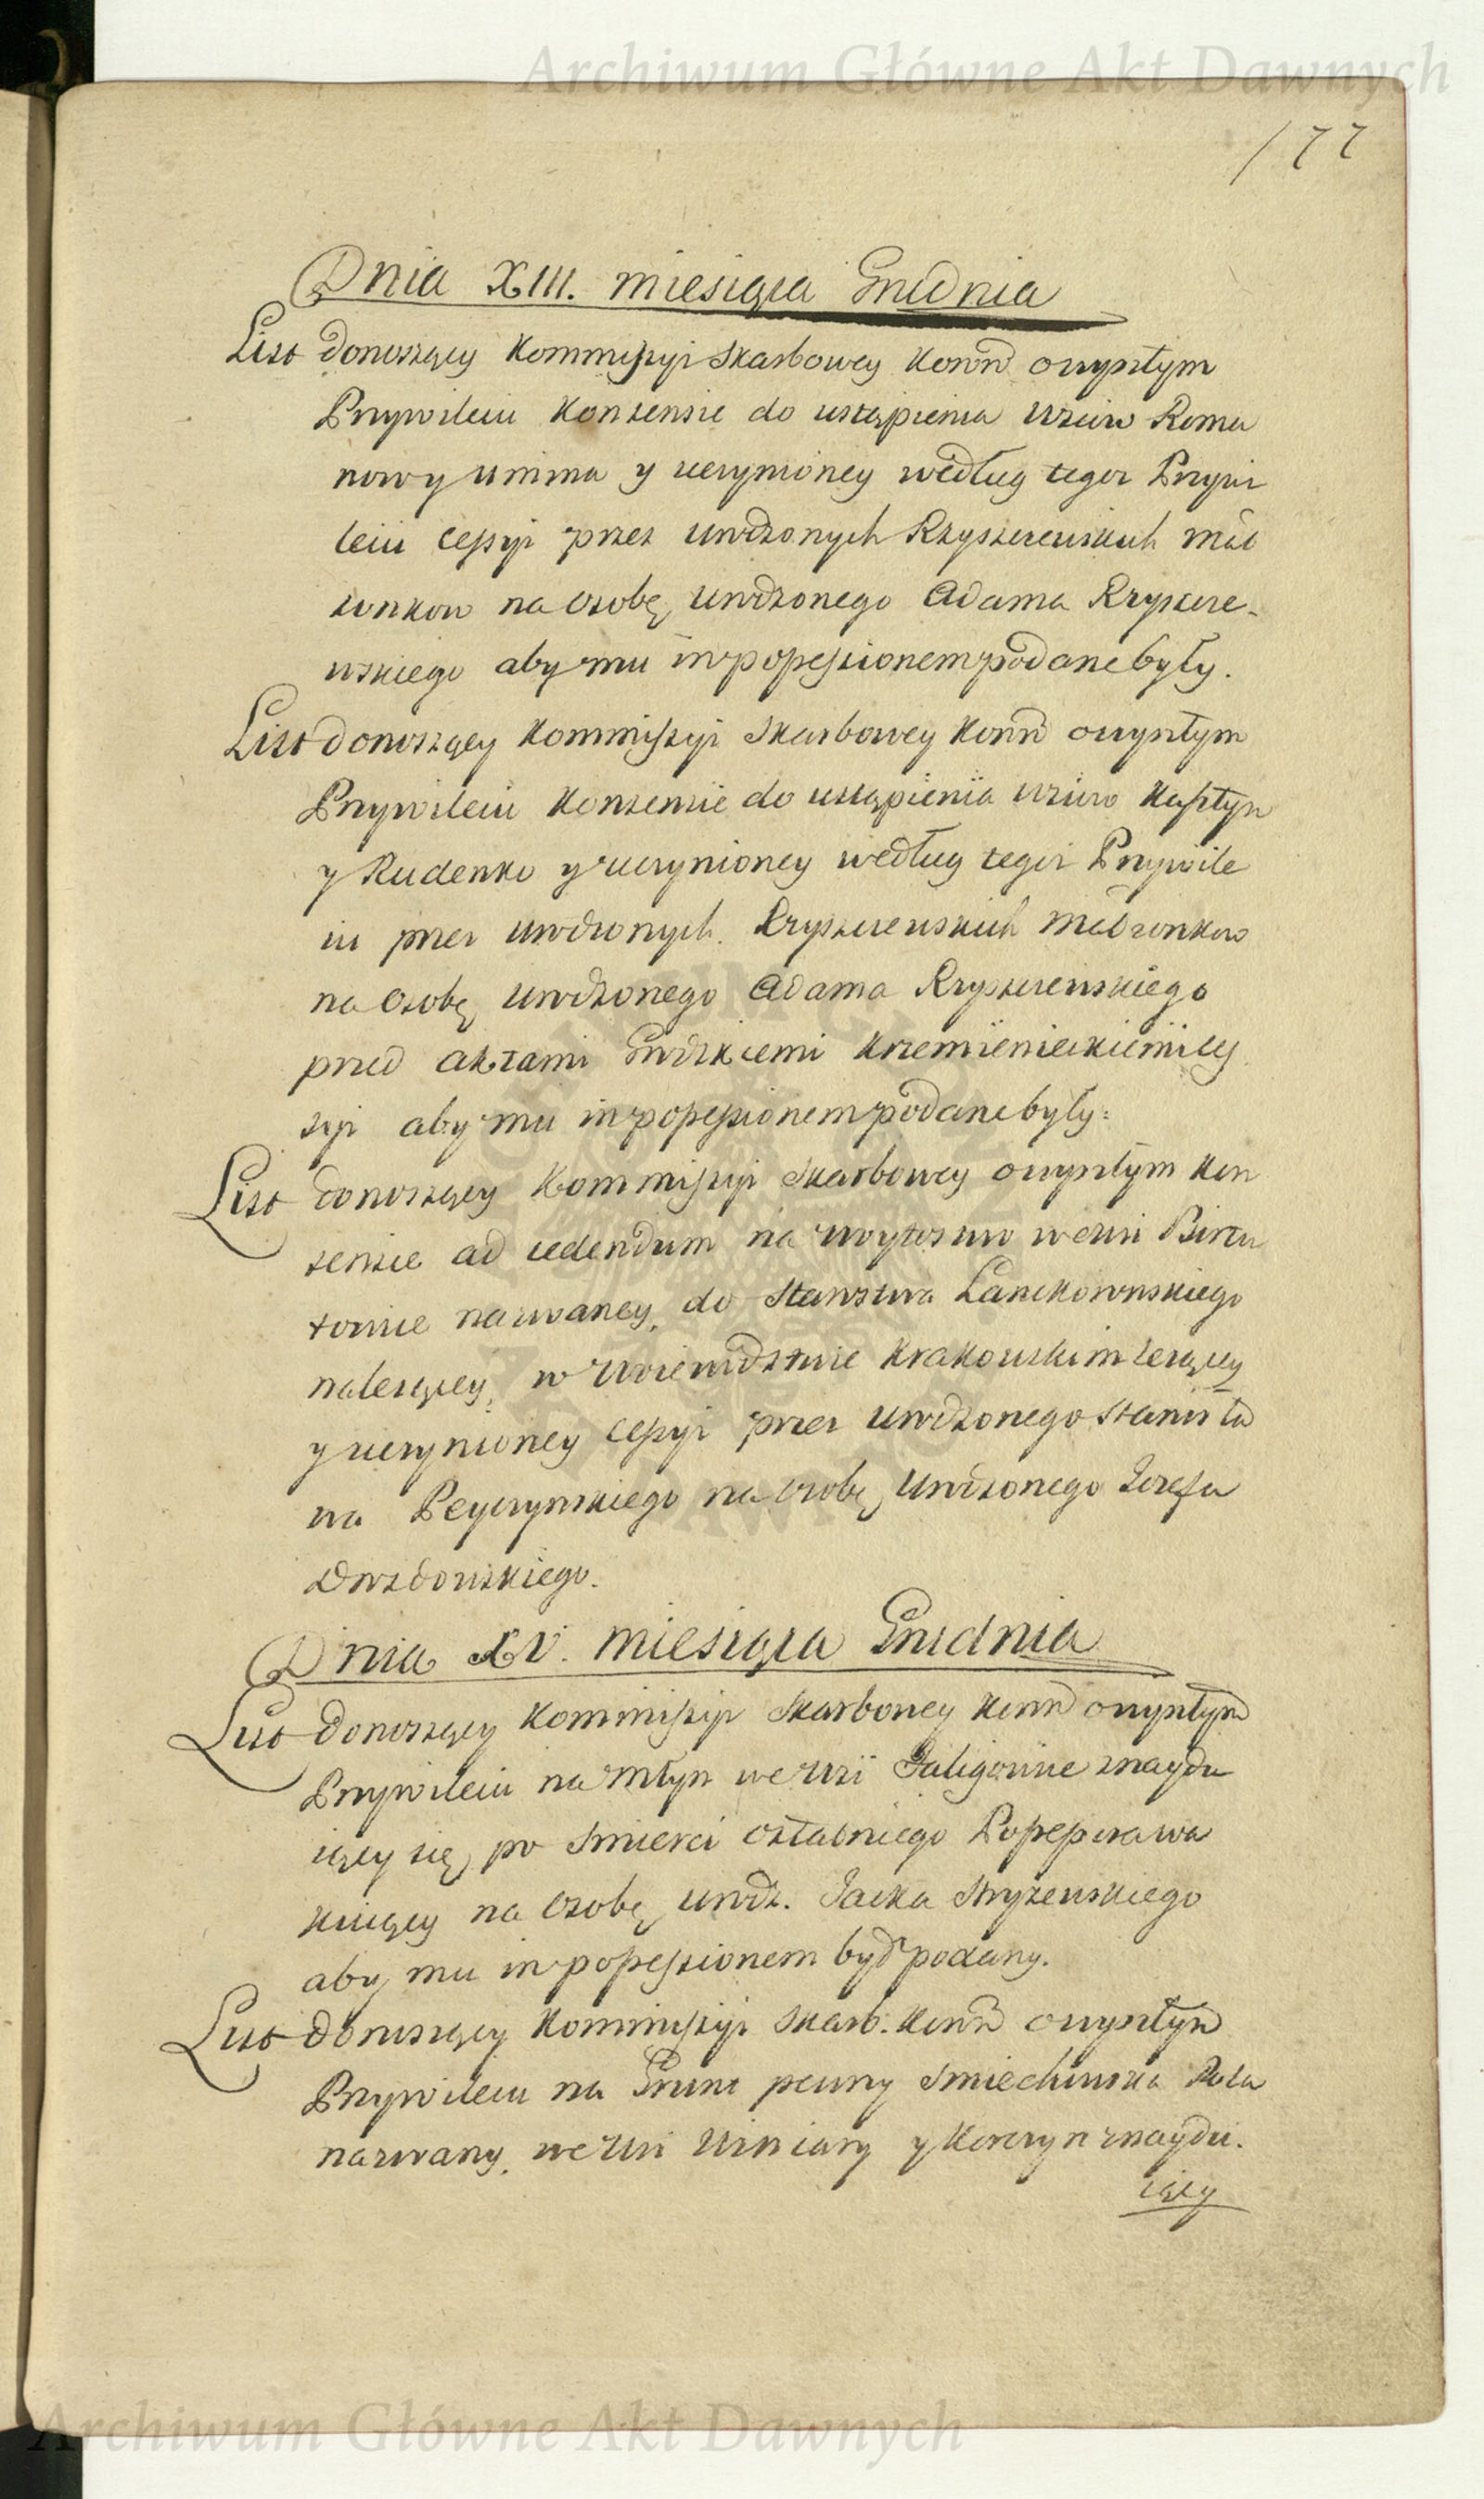 Archiwum Główne Akt Dawnych
177
Dnia XIII. miesiąca Grudnia
List donoszący Kommissyi Skarbowey Koron̄ o czystym
Przywileiu Konsensie do ustąpienia wsiow Roma
nowy y uczynioney według tegoż Przywi
leiu Cessyi przez Urodzonych Rzyszczewskich Mał
zonkow na Osobę Urodzonego Adama Rzyszcze-
wskiego aby mu in possessionem podane były.
List donoszący Kommissyi Skarbowey Koron̄ o czystym
Przywileiu Konsensie do ustąpienia wsiow
y Rudenko y uczynioney według tegoż Przywile
iu przez Urodzonych Rzyszczewskich Małzonkow
na Osobę Urodzonego Adama Rzyszczewskiego
przed Aktami Grodzkiemi Krzemienieckiemi Ces
syi aby mu in possessionem podane były:
List donoszący Kommissyi Skarbowey o czystym Kon
sensie ad cedendum na Woytostwo we wsi
nazwaney, do Starostwa Lanckoronskiego
należącey, w Woiewodztwie Krakowskim leżący
y uczynioney Cessyi przez Urodzonego Stanisła
wa Peyczynskiego na Osobę Urodzonego Iozefa
Drozdowskiego.
Dnia XV. miesiąca Grudnia
List donoszący Kommissyi Skarbowey Koron̄ o czystym
Przywileiu na Młyn we wsi znaydu
iący się, po Smierci ostatniego Possessora wa
kuiący na Osobę Urodz. Iacka Stryżewskiego
aby mu in possessionem był podany.
List donoszący Kommissyi Skarb. Koron̄ o czystym
Przywileiu na Grunt pewny Smiechowska Rola
nazwany, we wsi Winiary y Korczyn znaydu.
iący
Archiwum Główne Akt Dawnych